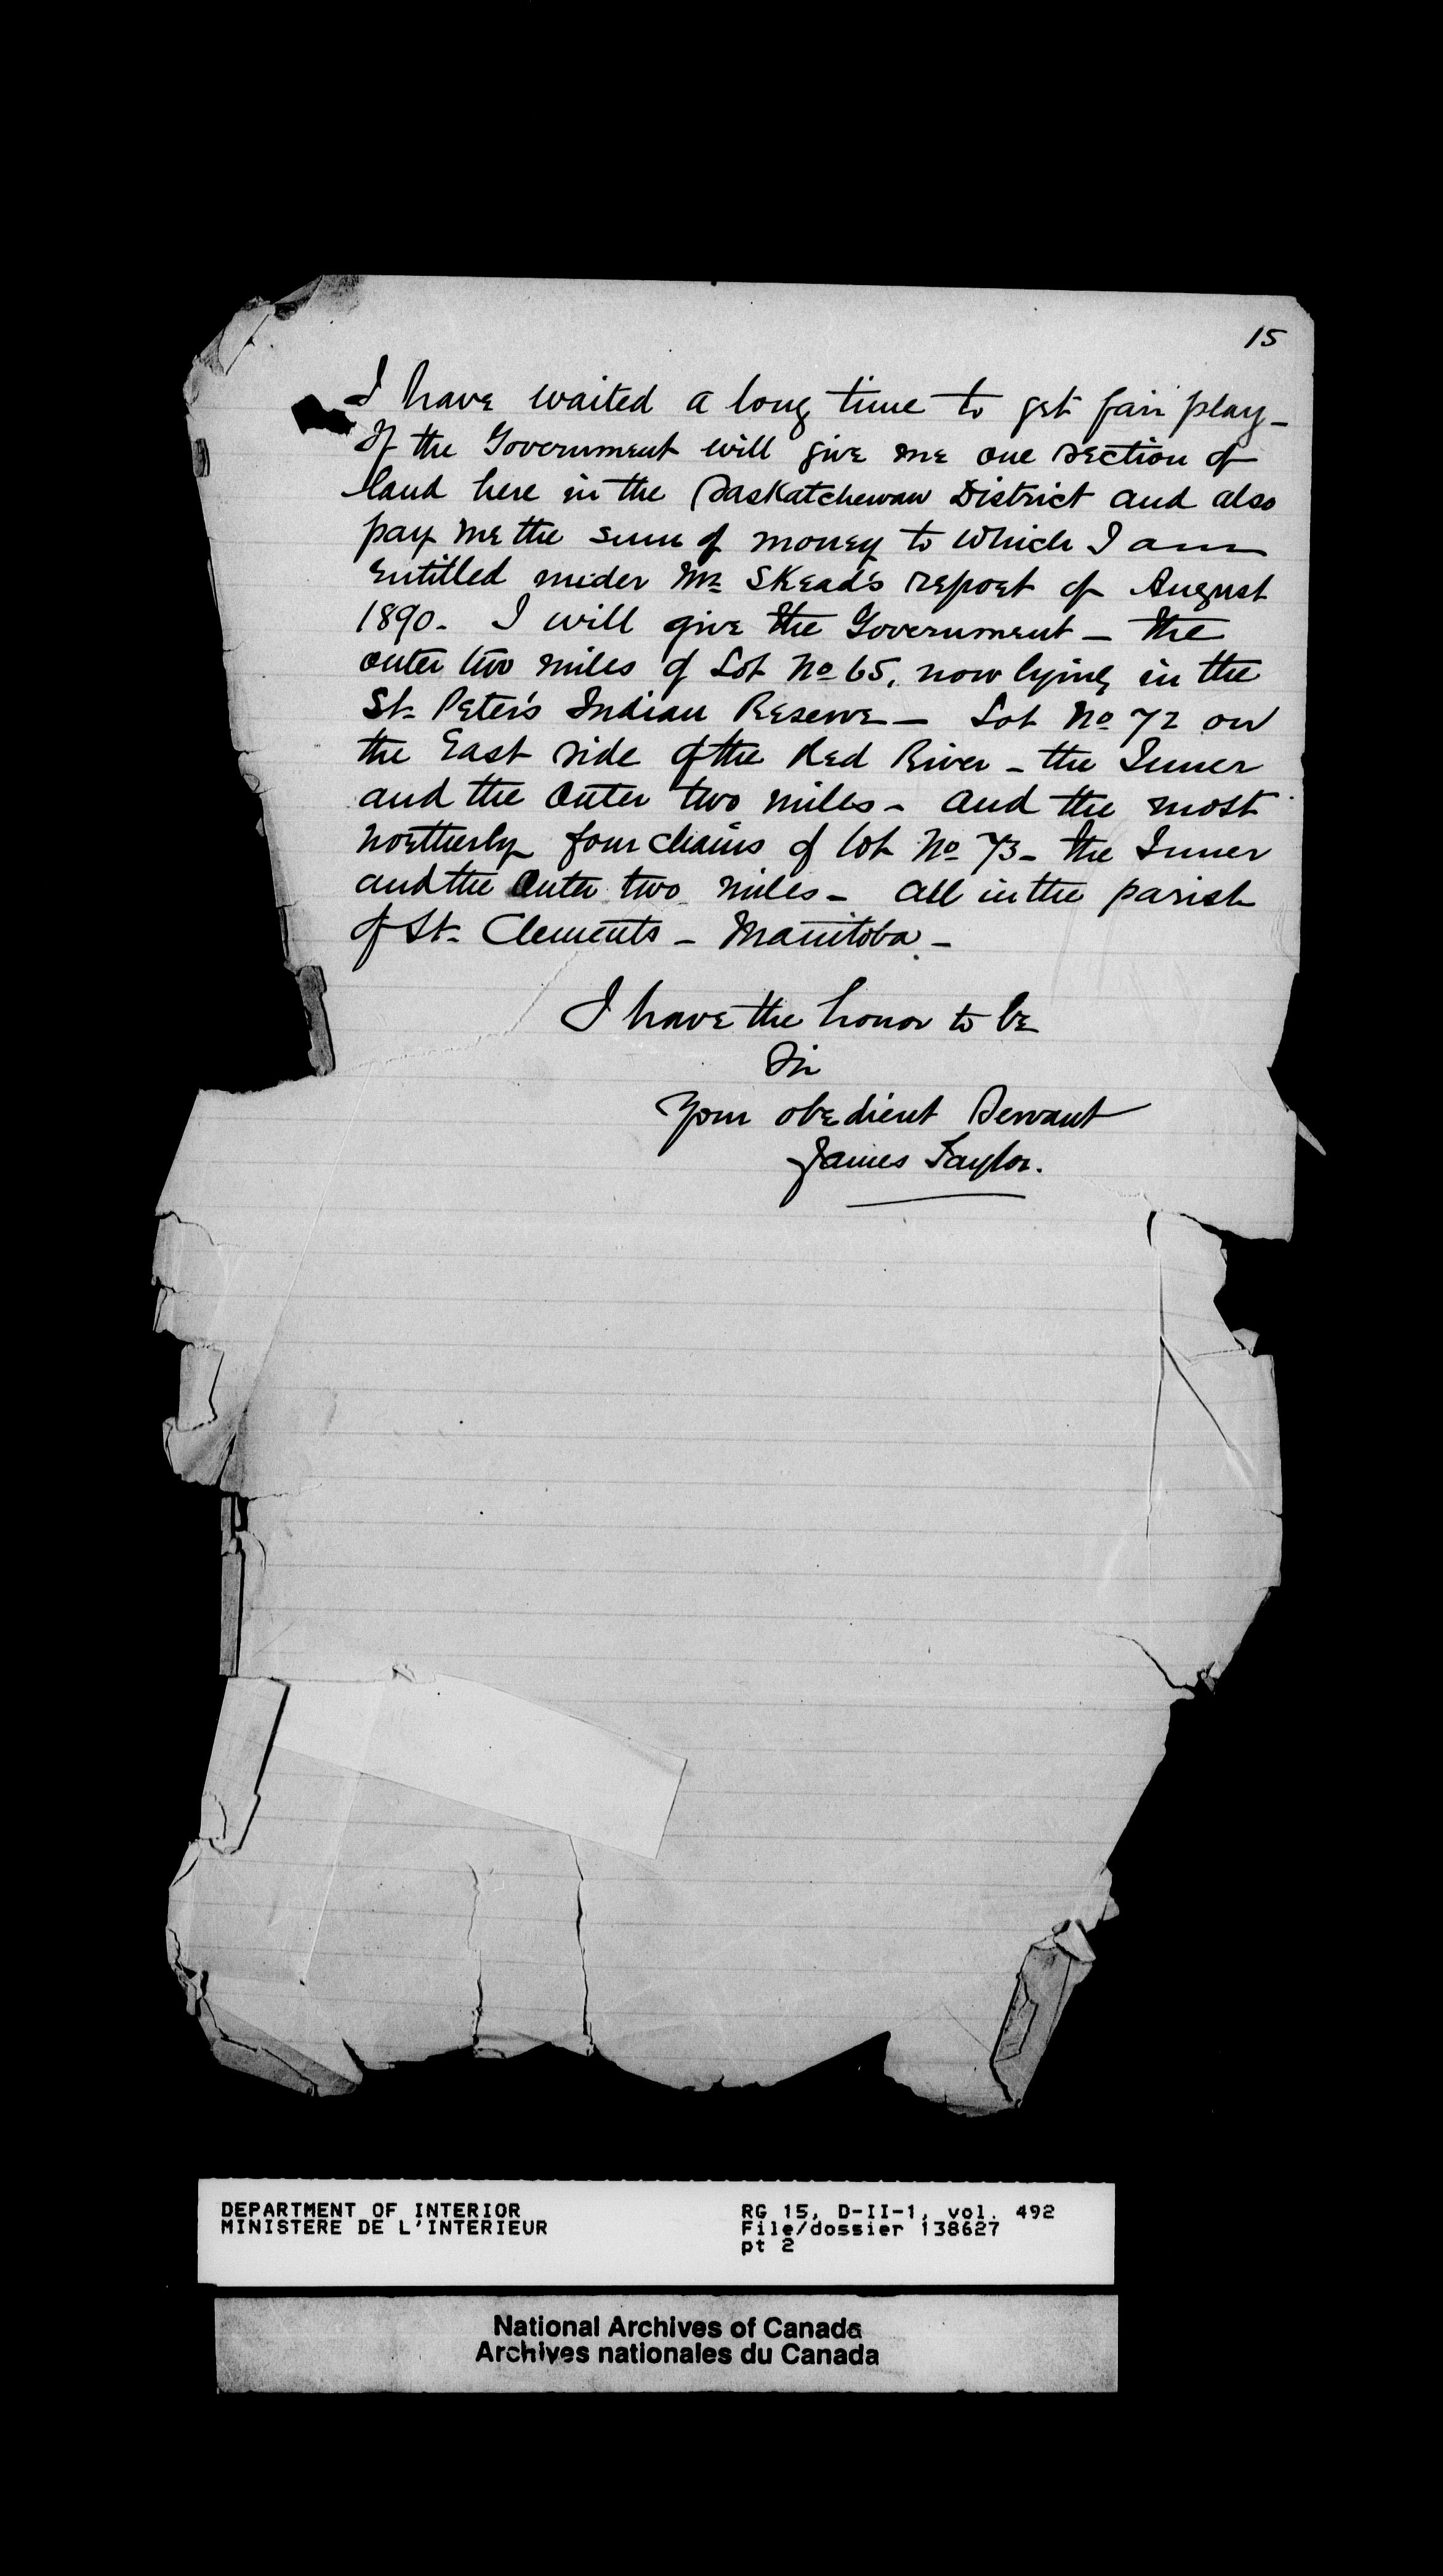 15
I have waited a long time to get fair play -
If the Government will give me one section of
land here in the Saskatchewan District and also
pay me the sum of money to which I am
entitled under Mr Skead's report of August
1890. I will give the Government - the
outer two miles of Lot No 65, now lying in the
St. Peter's Indian Reserve - Lot No 72 on
the East side of the Red River - the Inner
and the outer two miles - and the most
northerly four chains of lot No 73 - the Inner
and the Outer two miles - all in the parish
of St. Clements - Manitoba -
I have the honor to be
Sir
Your obedient Servant
James Taylor.
DEPARTMENT OF INTERIOR
MINISTERE DE L'INTERIEUR
RG 15, D-II-1, vol. 492
File/dossier 138627
pt 2
National Archives of Canada
Archives nationales du Canada